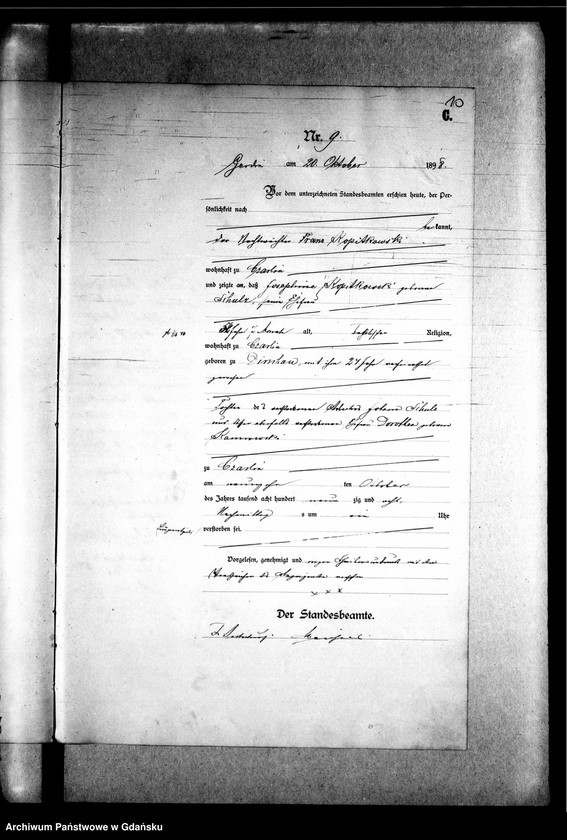 10
C.
Nr. 9.
am 20. Oktober 1898.
Vor dem unterzeichneten Standesbeamten erschien heute, der Per-
sönlichkeit nach
be kannt,
der Nachtwächter Franz Kopitkowski
wohnhaft zu Czarlin
und zeigte an, daß Josephine Kopitkowski geborene
Schulz, seine Ehefrau
alt, katholischer Religion,
wohnhaft zu Czarlin
geboren zu Dirschau, mit ihm 24 Jahr verheirathet
gewesen
Tochter des verstorbenen Arbeiters Johann Schulz
und seiner ebenfalls verstorbenen Ehefrau Dorothea geborene
zu Czarlin
am neunzehn ten October
des Jahres tausend acht hundert neun zig und acht
Nachmittag s um ein Uhr
verstorben sei.
Vorgelesen, genehmigt und wegen Schreibensunkunde mit den
Handzeichen des versehen
x x x
Der Standesbeamte.
In Vertretung:
Archiwum Państwowe w Gdańsku